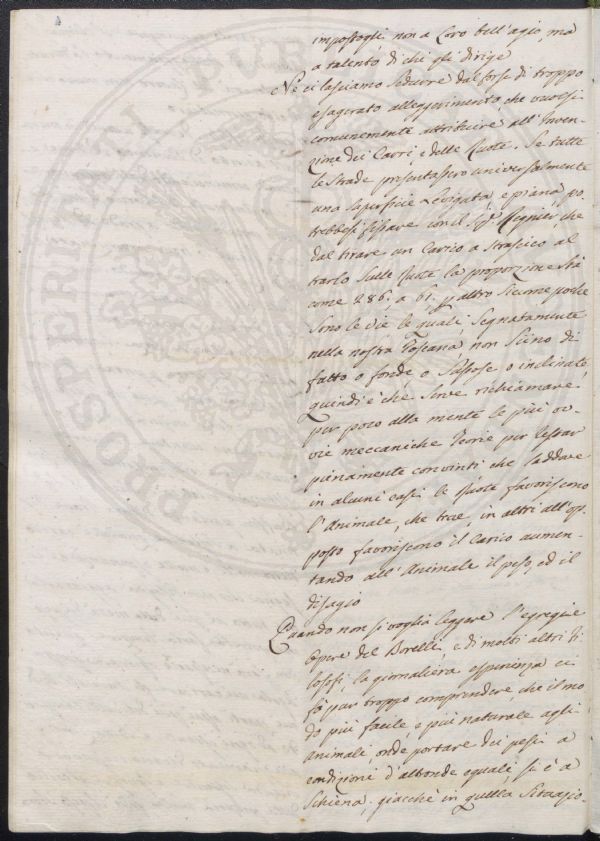 impostogli non a Loro bell'agio, mà
a talento di chi gli dirige
Nè ci lasciamo sedurre dal forse di troppo
esagerato alleggerimento, che vuolsi
comunemente attribuire all'Inven-
zione dei Carri, e delle Ruote. Se tutte
le Strade presentassero universalmente
una Superficie Levigata, e piana, po-
trebbesi fissare con il Sigr. Regnier, che
dal tirare un Carico a Strascico al
trarlo Sulle Ruote la proporzione stà
come 286. a 61. p altro Siccome poche
Sono le vie le quali Segnatamente
nella nostra Toscana non Siino di
fatto o fonde, o Sassose o inclinate
quindi è che Serve richiamare
per poco alla mente le più ov-
vie meccaniche Teorie per restar
pienamente convinti che laddove
in alcuni casi le Ruote favoriscono
l'Animale, che trae, in altri all'op-
posto favoriscono il Carico aumen-
tando all'Animale il peso, ed il
disagio
Quando non si voglia leggere l'egregie
Opere del Borelli, e di molti altri Fi-
losofi, la giornaliera esperienza ci
fà pur troppo comprendere, che il mo-
do più facile, e più naturale agli
animali, onde portare dei pesi a
condizioni d'altronde eguali, si è a
Schiena, giacchè in quella Situazio-
PROSPERITATI PUBLICAE